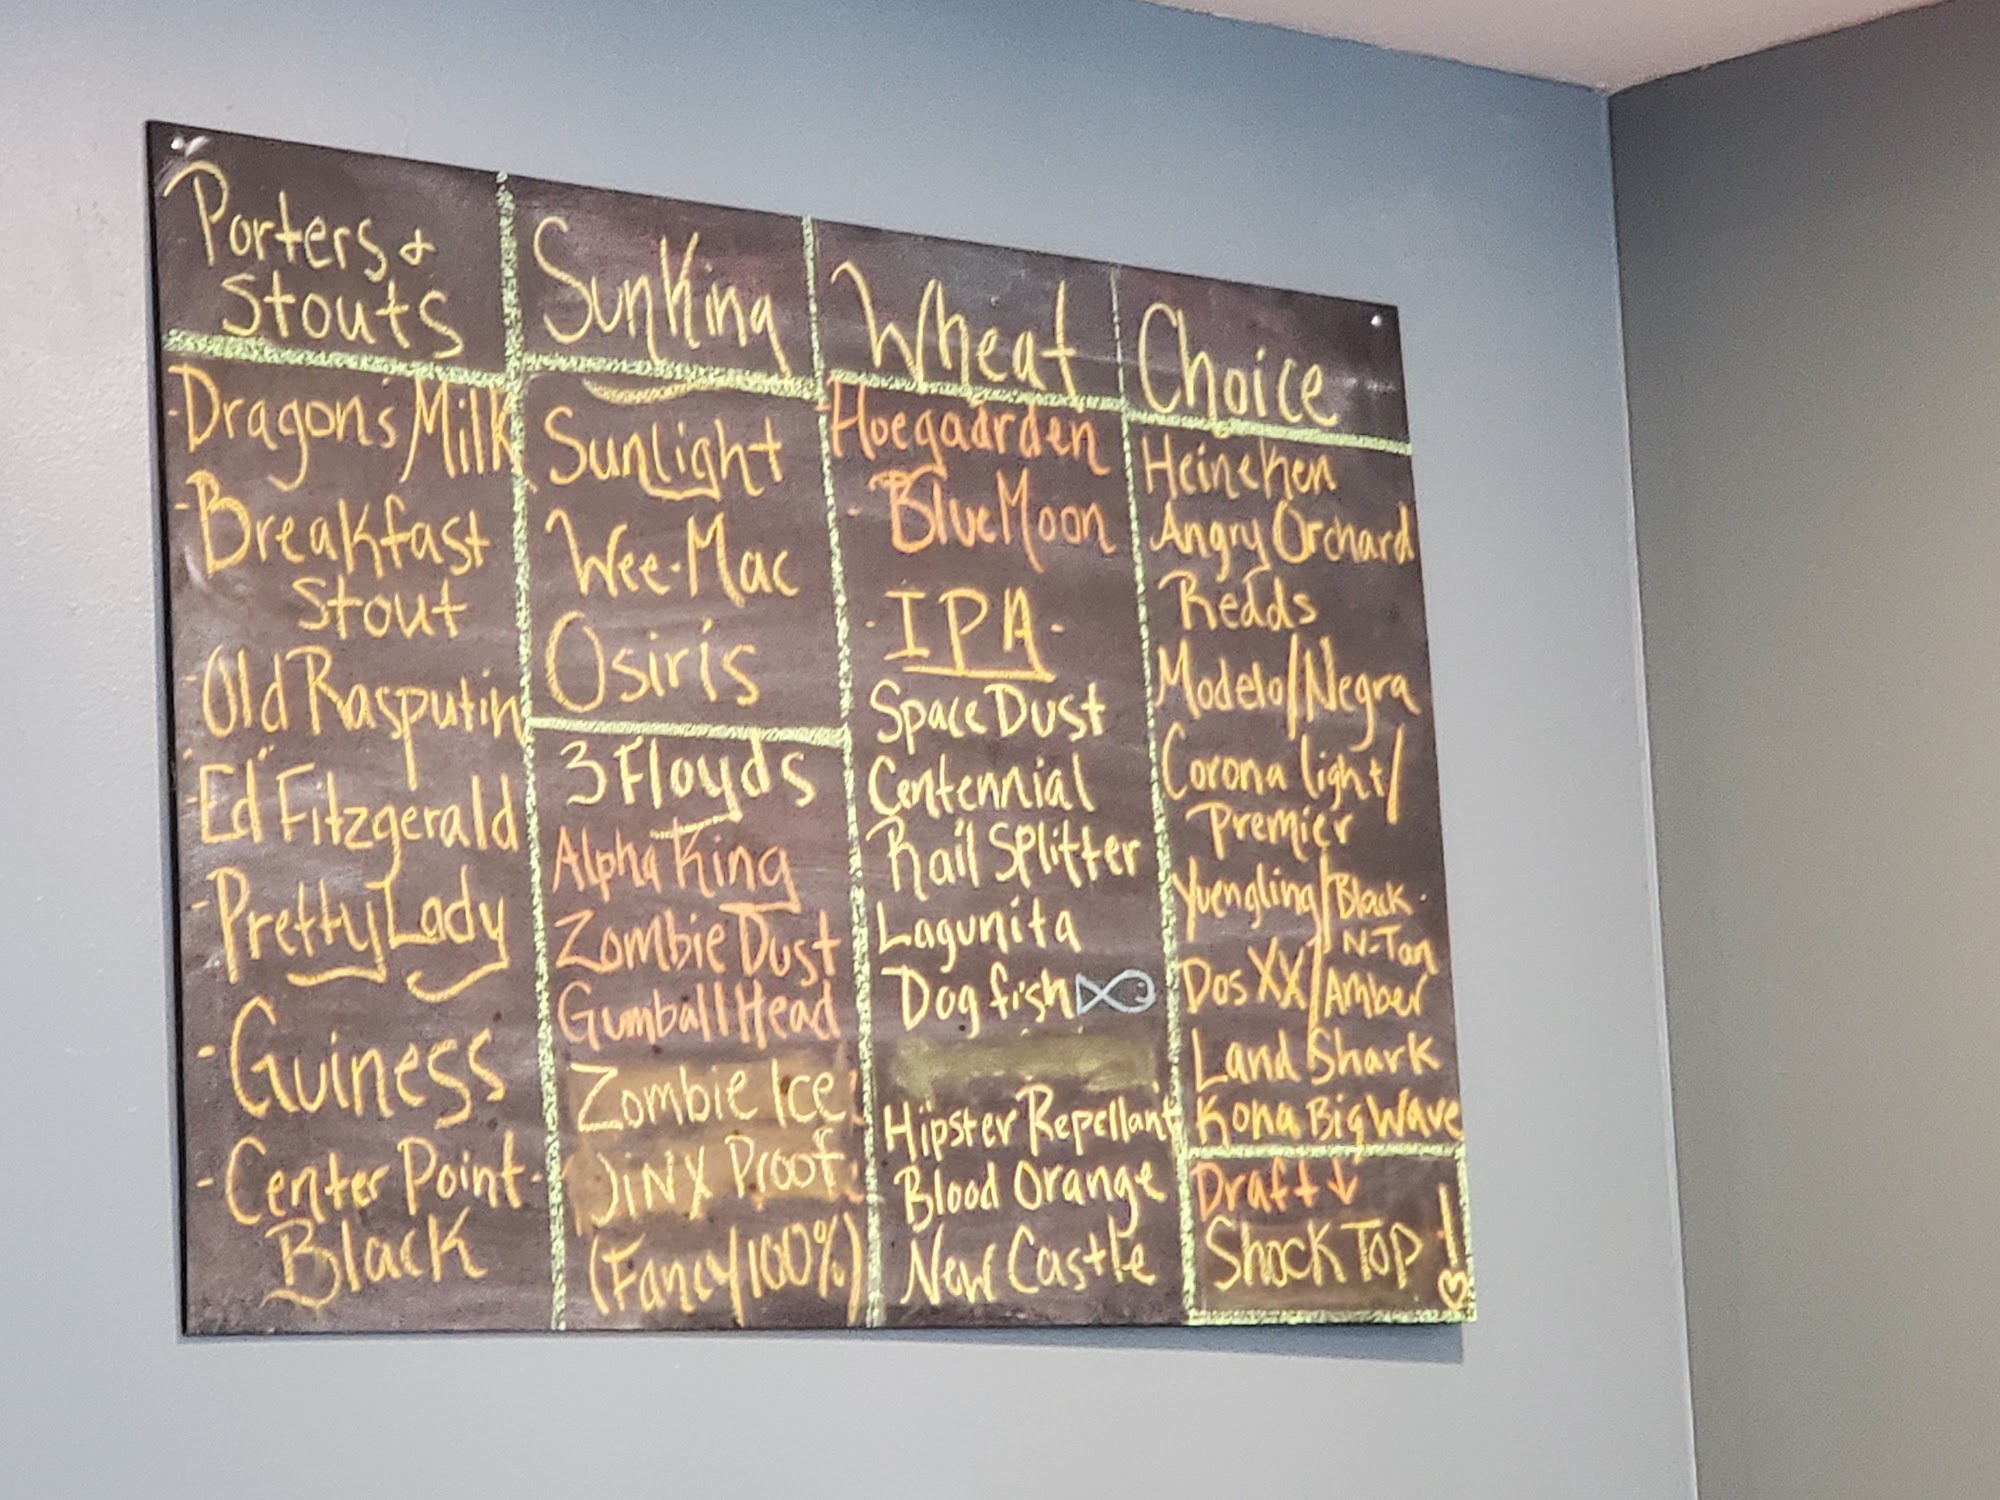 Porters &
Stouts
- Dragon's Milk
- Breakfast
Stout
- Old Rasputin
- "Ed" Fitzgerald
- Pretty Lady
- Guiness
- Center Point -
Black
SunKing
Sunlight
Wee-Mac
Osiris
3 Floyds
Alpha King
Zombie Dust
Gumball Head
Zombie Ice
JiNX Proof
(Fancy/100%)
Wheat
- Hoegaarden
- Blue Moon
- IPA -
Space Dust
Centennial
Rail Splitter
Lagunita
Dog fish
Hipster Repellant
Blood Orange
New Castle
Choice
Heineken
Angry Orchard
Redds
Modelo/Negra
Corona light/
Premier
Yuengling/Black-
N-Tan
Dos XX/Amber
Land Shark
Kona Big Wave
Draft ↓
Shock Top!